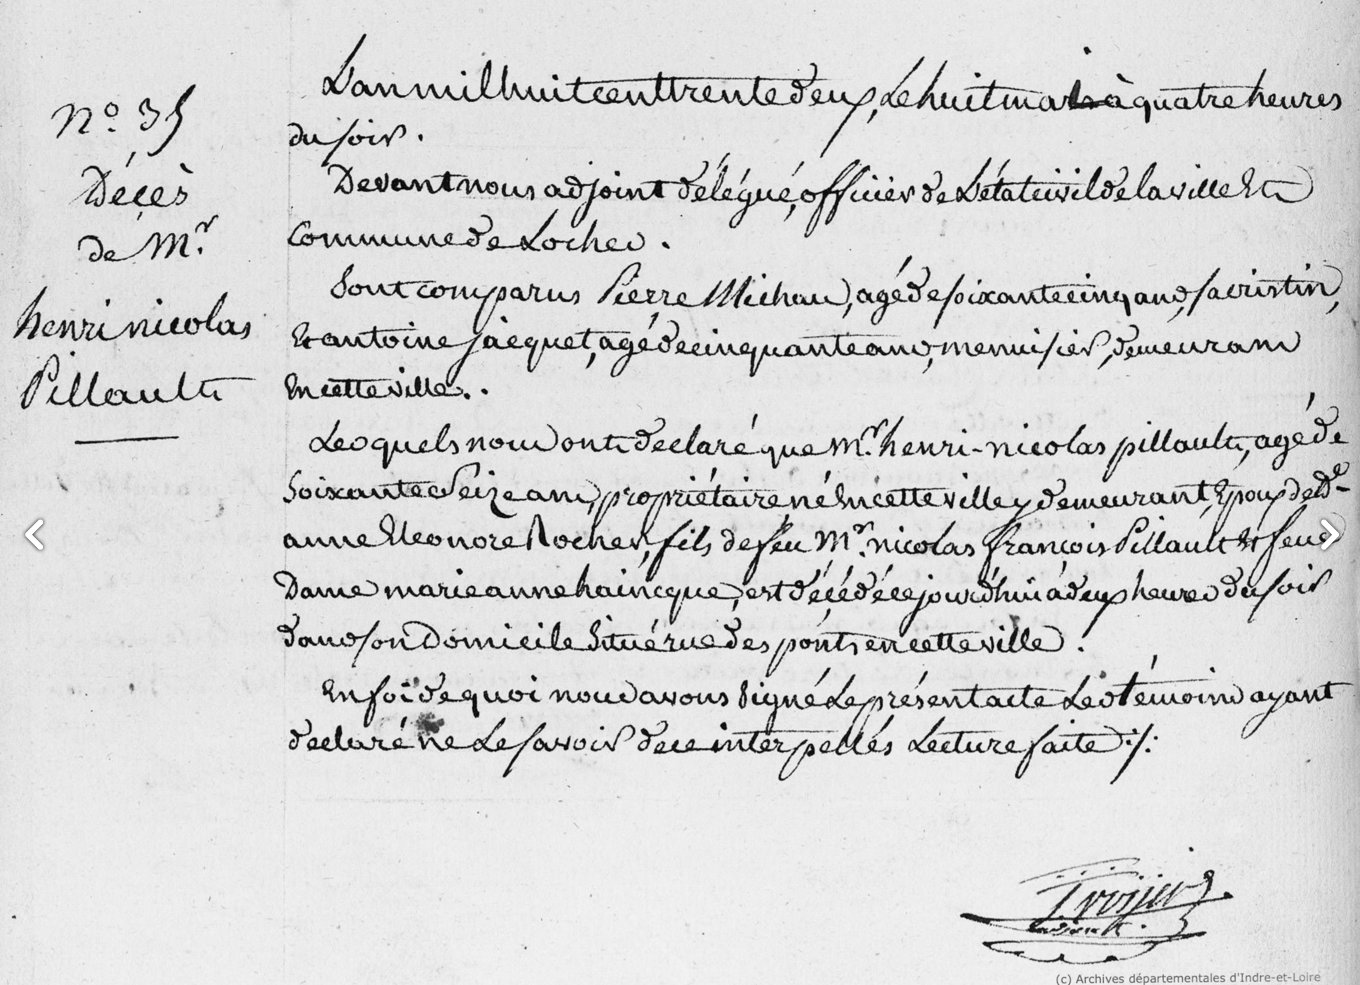 L'an mil huit cent trente deux, Le huit mars à quatre heures
du soir.
n.° 35
Décès
de M.r
henri nicolas
Pillault
Devant nous adjoint délégué, officier de L'état civil de la ville Et
Commune de Loches.
Sont comparus Pierre Michau, agé de soixante cinq ans, sacristin,
Et antoine Jacquet, agé de cinquante ans, menuisier, demeurans
En cette ville.
Lesquels nous ont déclaré que M.r henri-nicolas pillault, agé de
Soixante Seize ans, propriétaire né En cette ville y demeurant, Epoux de D.e
anne Eleonore Rocher, fils de feu M.r nicolas françois Pillault Et feue
Dame marie anne haincque, est décédé ce jourd'hui à deux heures du soir
dans son Domicile Situé rue des ponts en cette ville.
En foi de quoi nous avons Signé Le présent acte Les témoins ayant
declaré ne Le savoir de ce interpellés Lecture faite ./.
(c) Archives départementales d'Indre-et-Loire